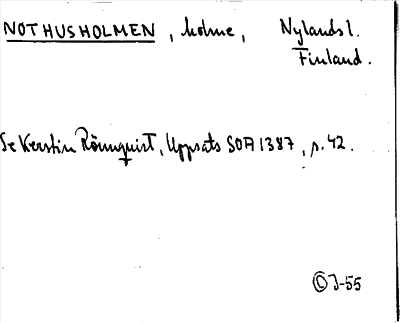 NOTHUSHOLMEN, holme, Nylands l.
Finland.
Se Kerstin Rönnquist, Uppsats SOA 1387, s. 42.
© J-55